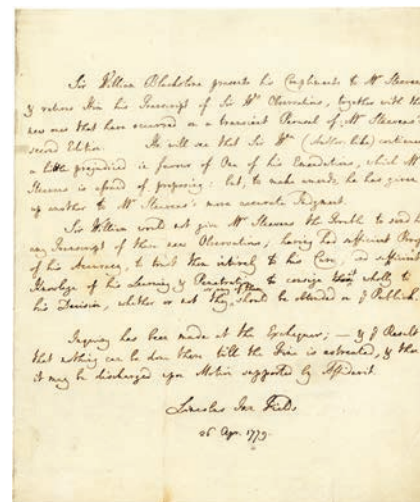 Sir William Blackstone presents his Compliments to Mr Steevens
& returns Him his Transcript of Sir Wms Observations, together with the
new ones that have occurred on a transient Perusal of Mr Steevens's
second Edition. He will see that Sir Wm (Author-like) continues
a little prejudiced in favour of One of his Emendations, which Mr
Steevens is afraid of proposing: but, to make amends, he has given
up another to Mr Steevens's more accurate Judgment.
Sir William would not give Mr Steevens the Trouble to send him
any Transcript of these new Observations; having had sufficient Proof
of his Accuracy, to trust them intirely to his Care, and sufficient
Knowlege of his Learning & Penetration to consign wholly to
his Decision, whether or not they, or any of them should be attended or Publish
Inquiry has been made at the Exchequer; — & Result
that nothing can be done there till the Fine is estreated, & then
it may be discharged upon Motion supported by Affidavit.
Lincolns Inn Fields
26 Apr. 1779.